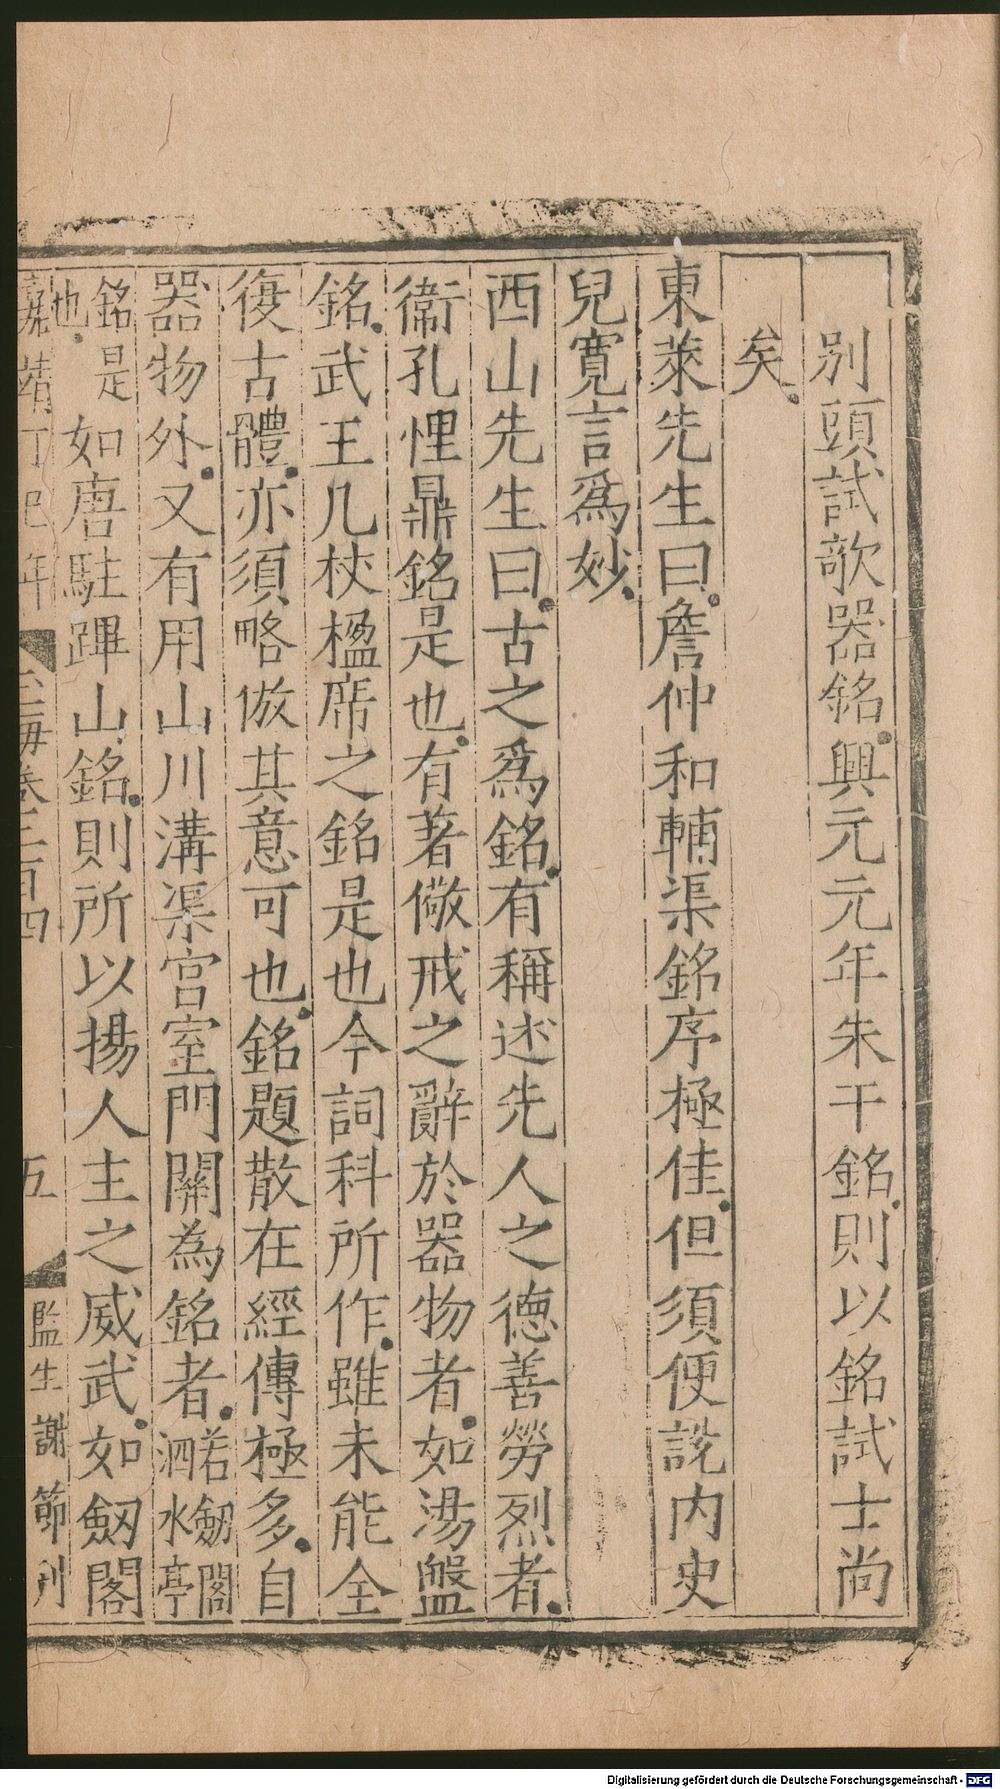 別頭試欹器銘興元元年朱干銘則以銘試士尚
矣
東萊先生曰詹仲和輔渠銘序極佳但須便説内史
兒寬言爲妙
西山先生曰古之爲銘有稱述先人之德善勞烈者
衞孔悝鼎銘是也有著儆戒之辭於器物者如湯盤
銘武王几杖楹席之銘是也今詞科所作雖未能全
復古體亦須略倣其意可也銘題散在經傳極多自
器物外又有用山川溝渠宫室門關為銘者若劔閣
泗水亭
銘是
也
如唐駐蹕山銘則所以揚人主之威武如劔閣
嘉靖丁巳年
玉海卷二百四
五
監生謝節刊
Digitalisierung gefördert durch die Deutsche Forschungsgemeinschaft - DFG